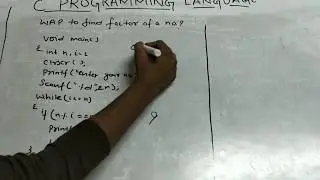 C PROGRAMMING LANGUAGE
WAP to find factor of a no?
void main()
{ int n, i=1
clrscr();
printf("enter your no
Scanf("%d",&n);
while(i<=n)
{
if (n%i==
print
}
9